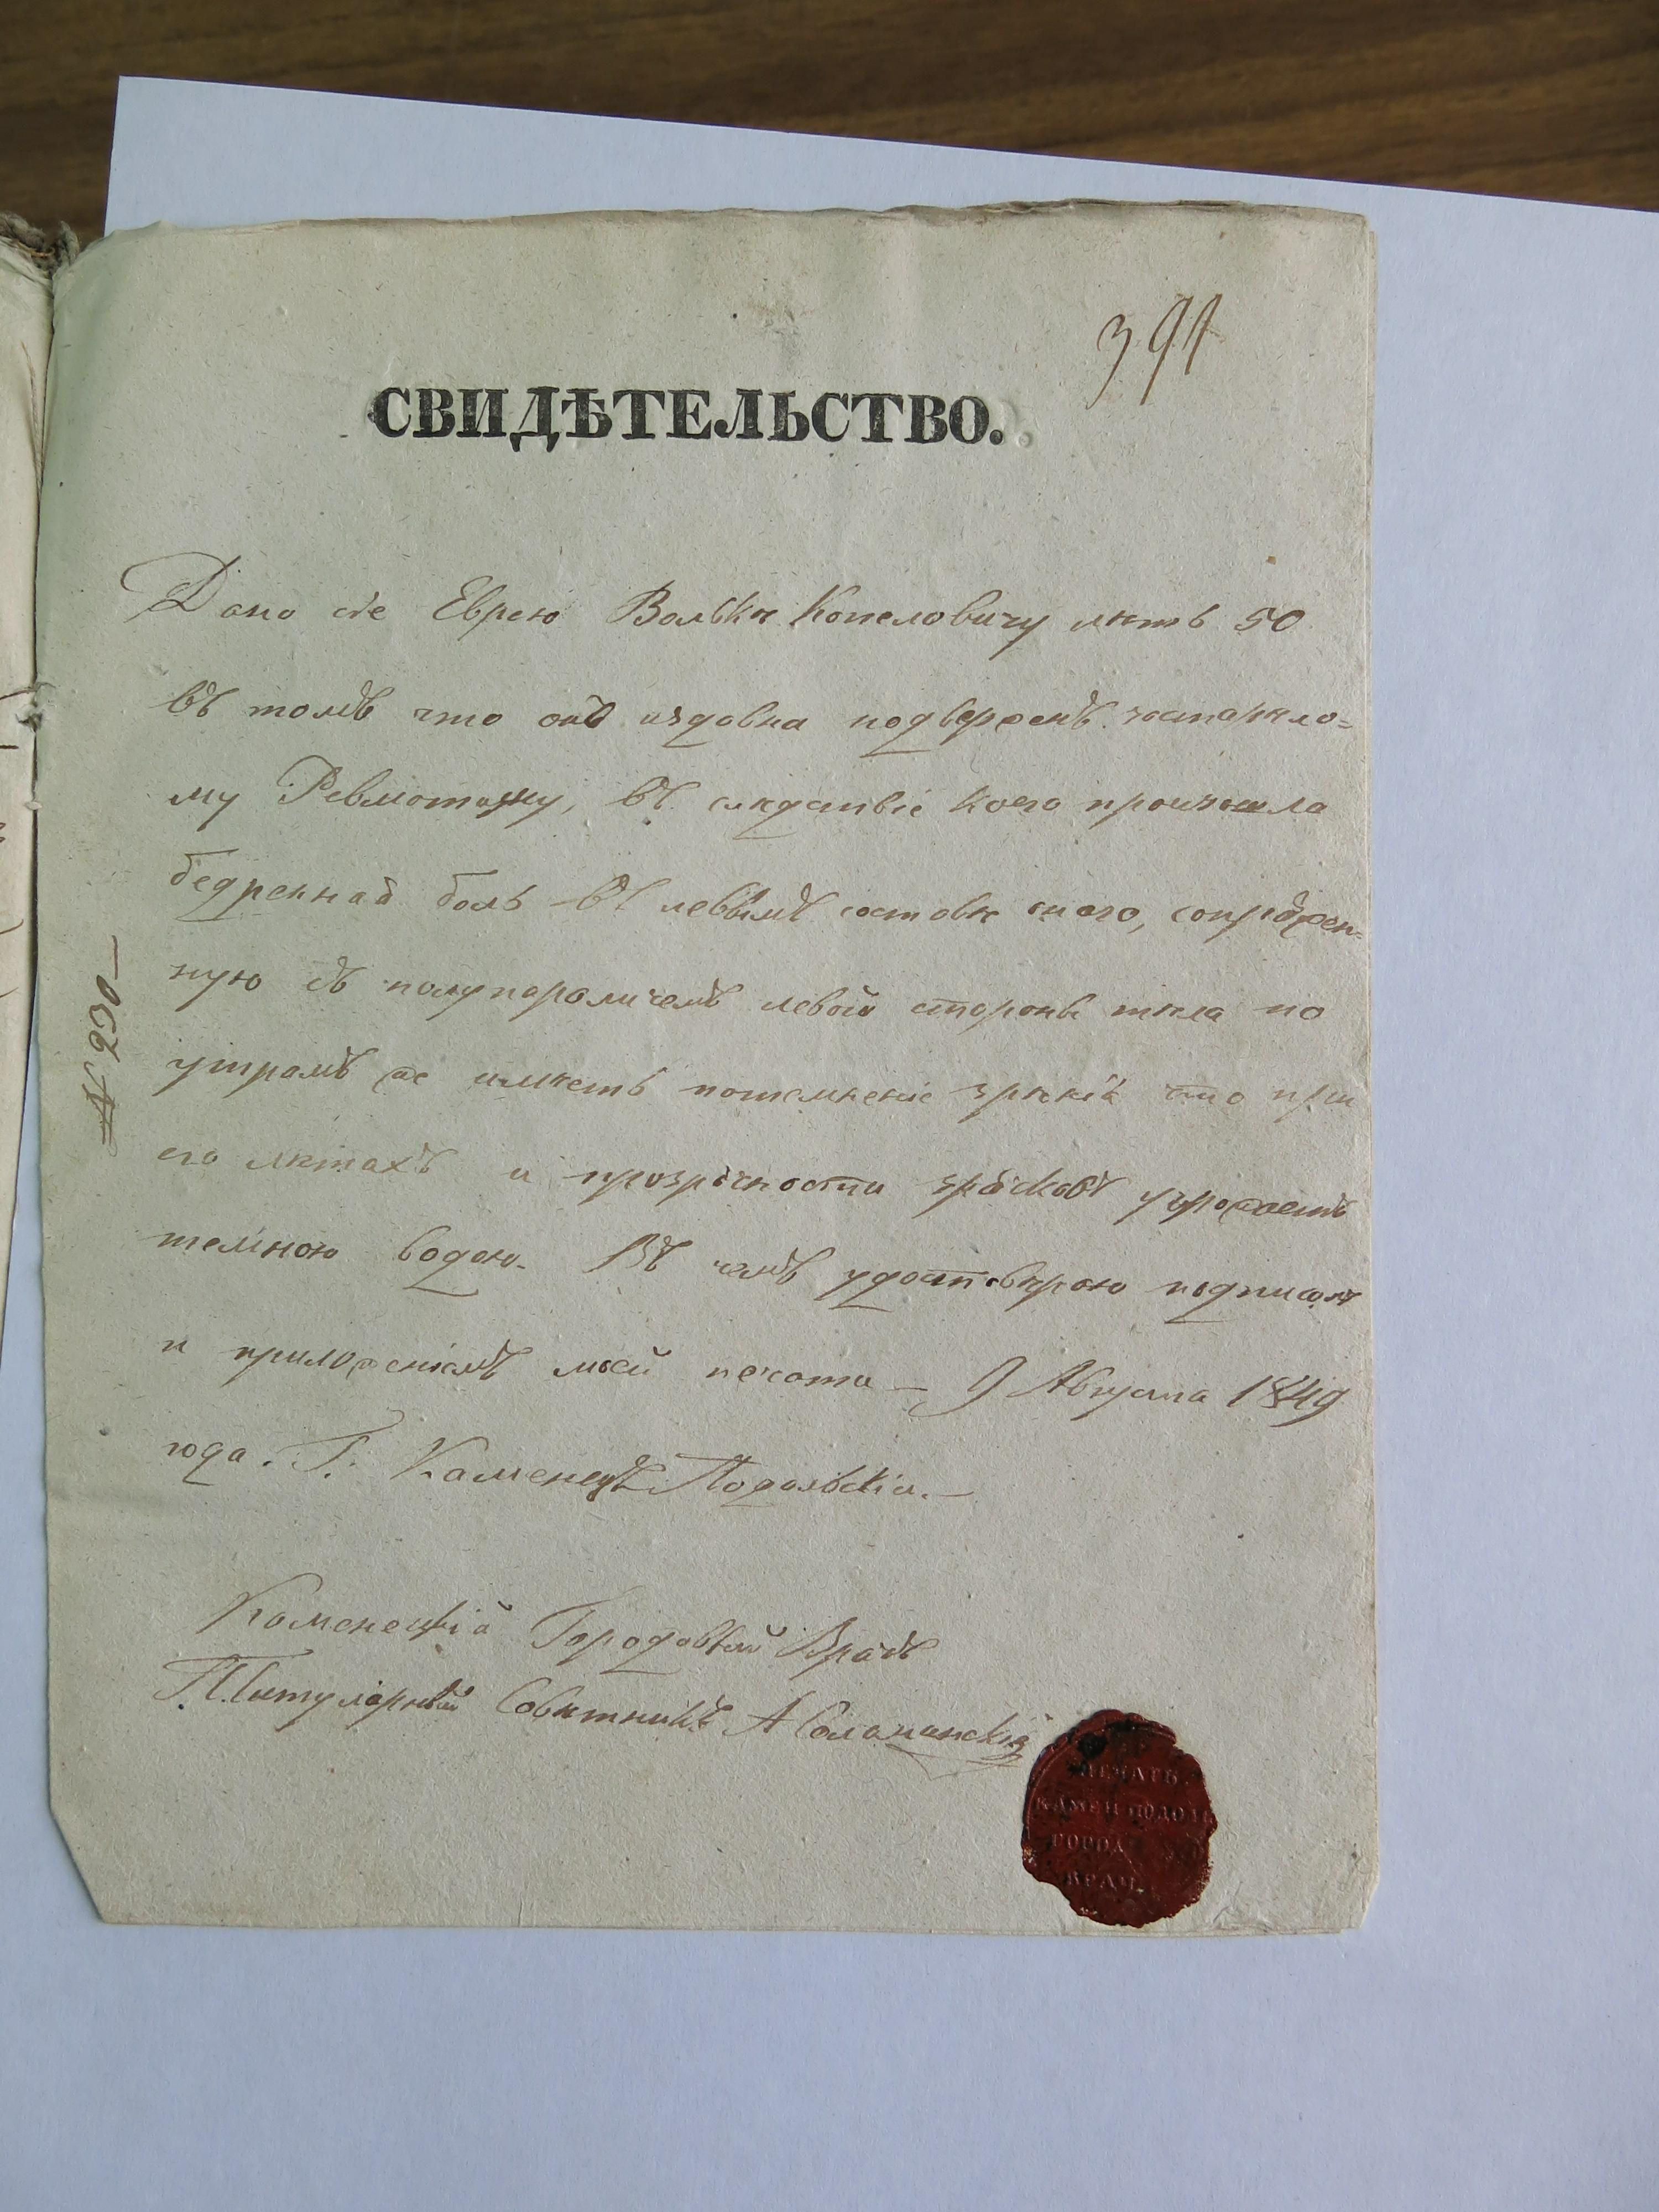 394
СВИДѢТЕЛЬСТВО.
Дано сіе Еврею Волькѣ Копеловичу лѣтъ 50
въ томъ что онъ издавна подверженъ застарѣло=
му Ревматизму, въ слѣдствіе коего произошла
бедренная боль въ левымъ составѣ оного, сопряжен=
ную съ полупараличемъ левой стороны тѣла по
утрамъ же имѣетъ потемнение зрѣнія что при
его лѣтахъ и прозрачности зрачковъ угрожаетъ
темною водою. Въ чемъ удостовѣряю подписомъ
и приложеніемъ моей печати — 9 Августа 1849
года. Г. Каменецъ Подольскій. —
Каменецкій Городовый Врачъ
Титулярный Совѣтникъ А
№ 230 —
ПЕЧАТЬ
КАМЕН ПОДОЛЬ
ГОРОД
ВРАЧ